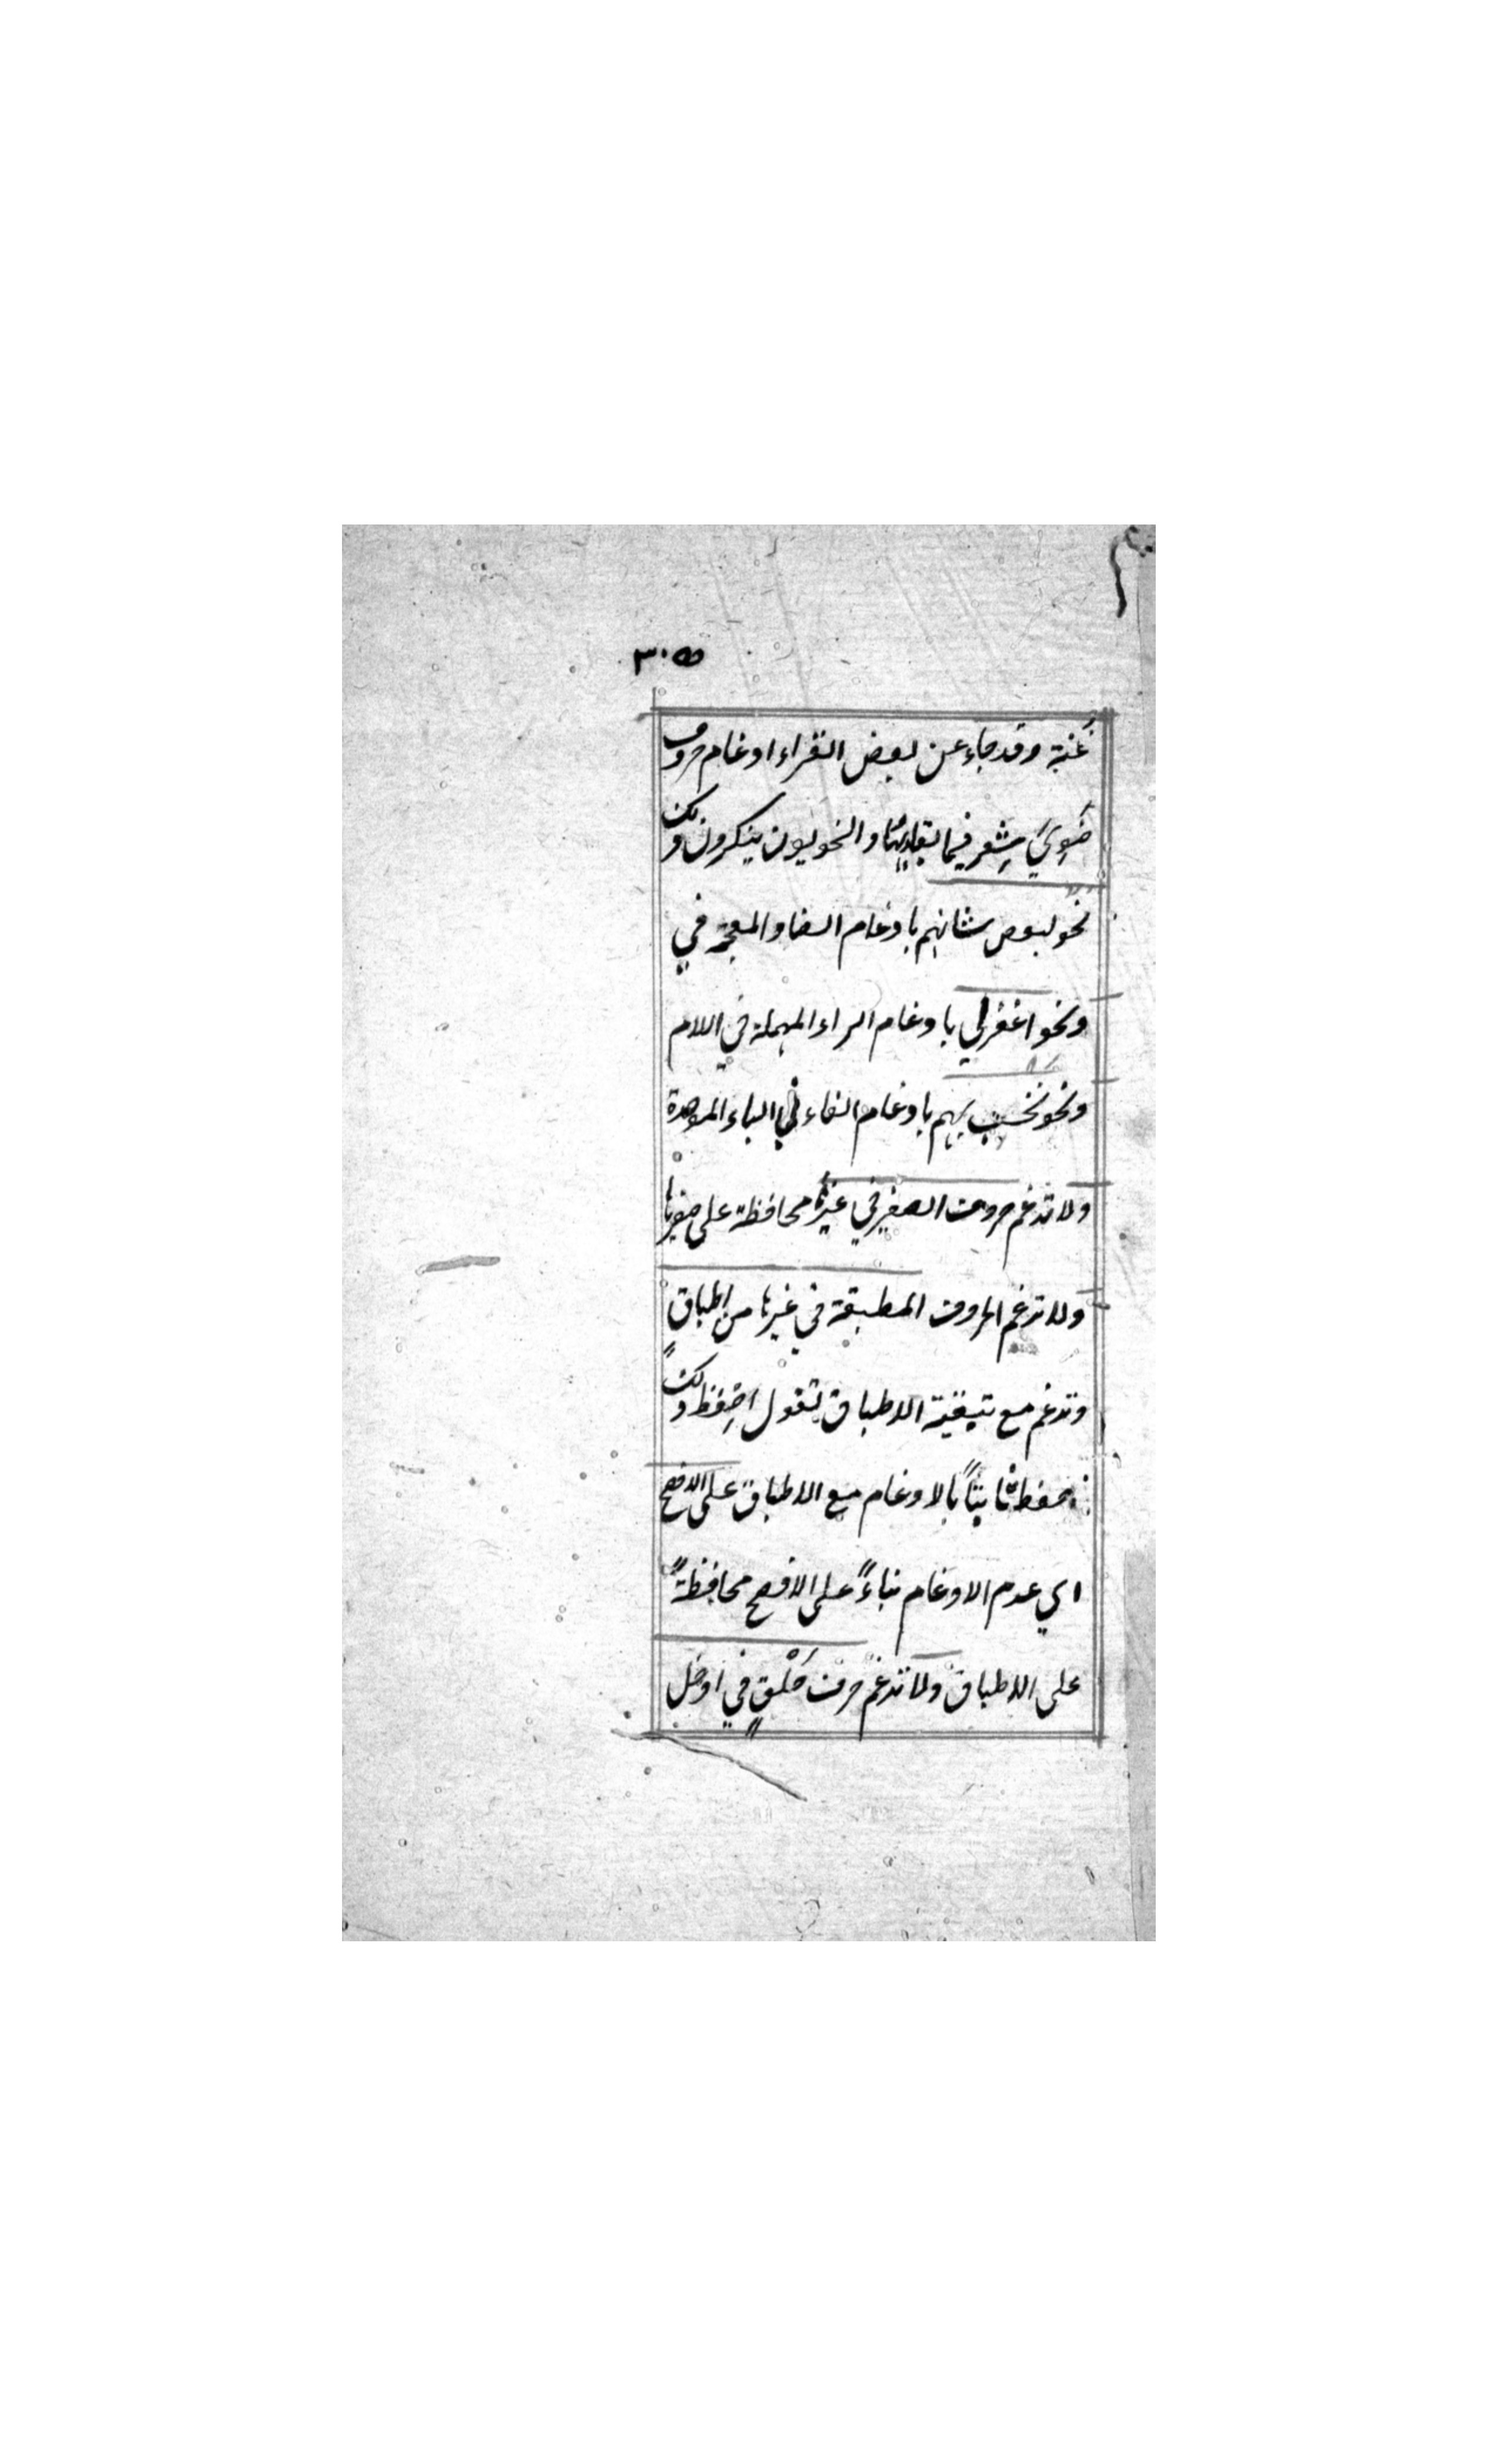 ٣٠٥
غنة وقد جاء عن بعض القراء ادغام حروف
ضَوِيَ مِشْفر فيما يقاربها والنحويون ينكرون ذلك
نحو لبعض شانهم بادغام الضاد المعجمة في
ونحو اغفر لي بادغام الراء المهملة في اللام
ونحو نخسف بهم بادغام الفاء في الباء الموحدة
ولا تدغم حروف الصفير في غيرها محافظة على صفيرها
ولا تدغم الحروف المطبقة في غيرها من اطباقٍ
وتدغم مع تبقية الاطباق تقول احْفظ ذلك
احفظ ثابتاً بالادغام مع الاطباق على الافصح
اي عدم الادغام بناءً على الافصح محافظةً
على الاطباق ولا تدغم حرف حَلْقٍ في ادخل